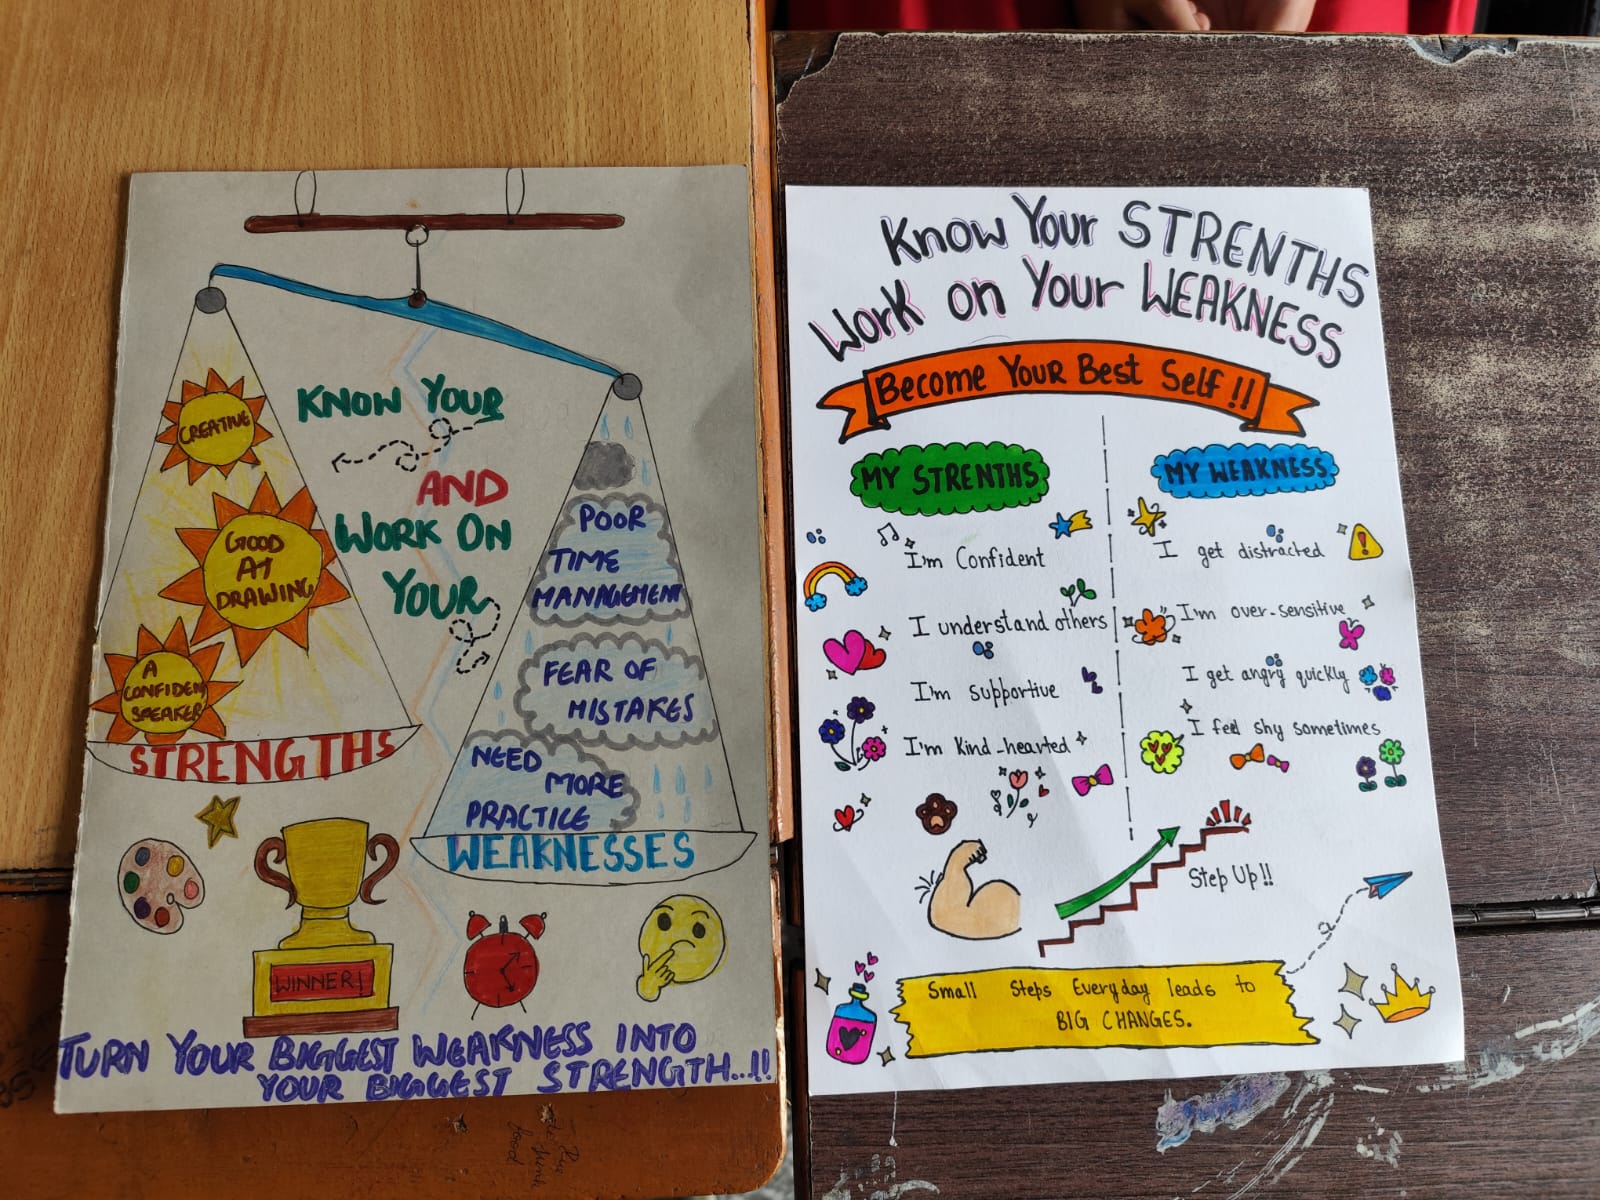 KNOW YOUR
AND
WORK ON
YOUR
CREATIVE
GOOD
AT
DRAWING
A
CONFIDEN
SPEAKER
STRENGTHS
POOR
TIME
MANAGEMENT
FEAR OF
MISTAKES
NEED
MORE
PRACTICE
WEAKNESSES
WINNER!
TURN YOUR BIGGEST WEAKNESS INTO
YOUR BIGGEST STRENGTH...!!
Know Your STRENTHS
Work on Your WEAKNESS
Become Your Best Self!!
MY STRENTHS
I'm Confident
I understand others
I'm supportive
I'm Kind-hearted
MY WEAKNESS
I get distracted
I'm over-sensitive
I get angry quickly
I feel shy sometimes
Step Up!!
Small Steps Everyday leads to
BIG CHANGES.